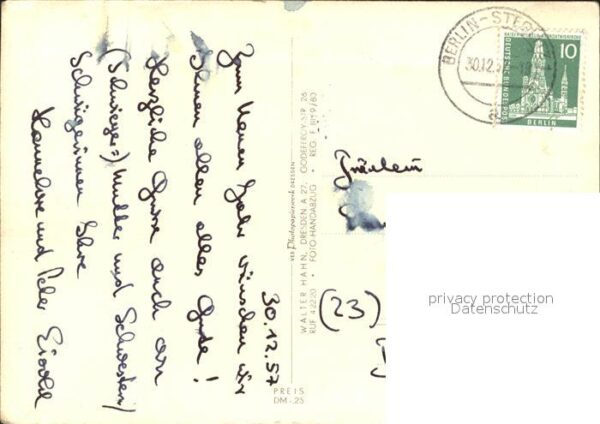 30.12.57
Zum Neuen Jahr wünschen wir
Ihnen allen alles Gute!
Herzliche Grüsse auch an
(Schwieger=) Mutter und Schwestern/
Schwägerinnen Ihre
Hannelore und Peter
VEB Photopapierwerk DRESDEN
WALTER HAHN, DRESDEN A 27, GODEFFROY-STR. 26
RUF 42220 • FOTO-HANDABZUG • REG. F 1019/80
PREIS
DM -.25
BERLIN-STEG
30.12.5
10
DEUTSCHE BUNDESPOST
BERLIN
Fräulein
(23)
privacy protection
Datenschutz